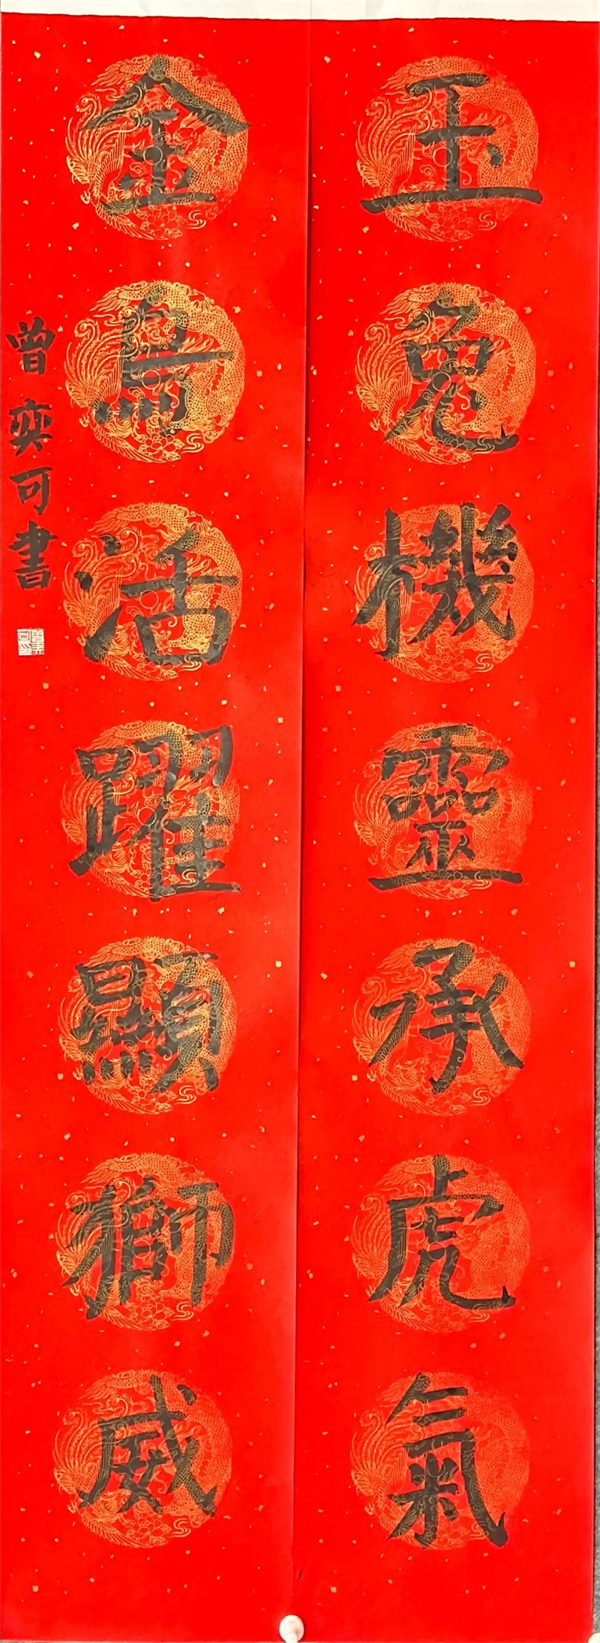 玉兔機靈承虎氣
金烏活躍顯獅威
曾奕可書